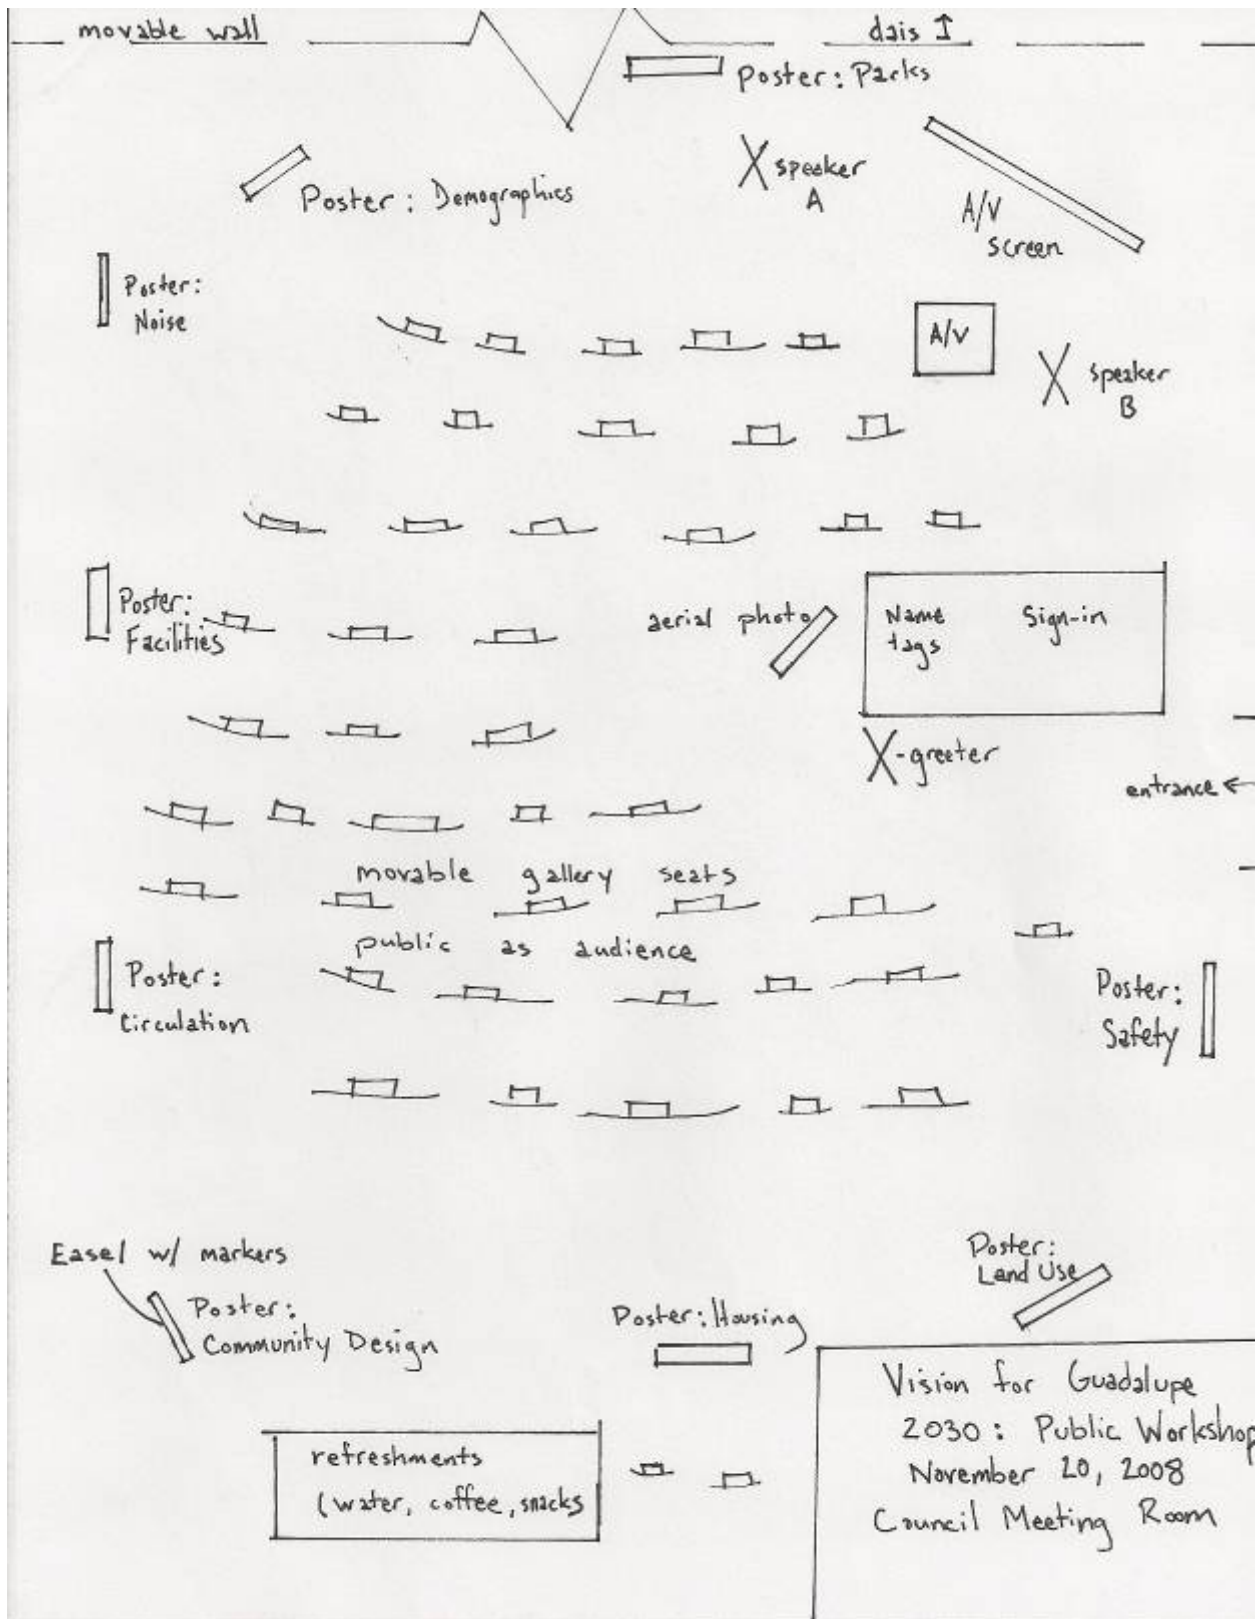 movable wall
dais ↑
Poster: Parks
Poster: Demographics
X speaker
A
A/V
screen
Poster:
Noise
A/V
X speaker
B
Poster:
Facilities
aerial photo
Name
tags
Sign-in
X-greeter
entrance ←
movable gallery seats
public as audience
Poster:
Circulation
Poster:
Safety
Easel w/ markers
Poster:
Community Design
Poster: Housing
Poster:
Land Use
refreshments
(water, coffee, snacks
Vision for Guadalupe
2030: Public Workshop
November 20, 2008
Council Meeting Room